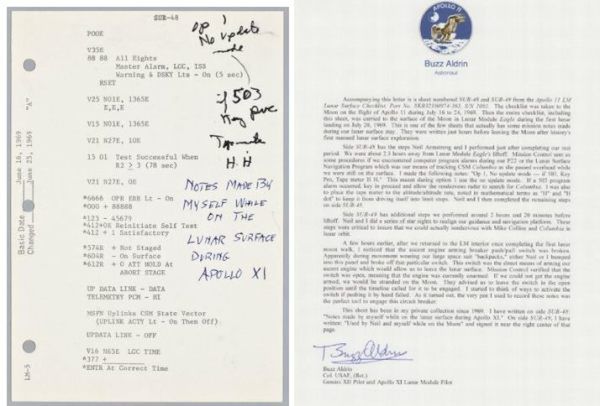 SUR-48
POOE
V35E
88 88 All Eights
Master Alarm, LGC, ISS
Warning & DSKY Lts - On (5 sec)
RSET
V25 N01E, 1365E
E,E,E
V15 N01E, 1365E
V21 N27E, 10E
15 01 Test Successful When
R2 > 3 (78 sec)
V21 N27E, 0E
*6666 OPR ERR Lt - On
*000 + 88888
*123 - 45679
*412+0E Reinitiate Self Test
*412 + 1 Satisfactory
*574R + Not Staged
*604R - On Surface
*612R + 0 ATT HOLD At
ABORT STAGE
UP DATA LINK - DATA
TELEMETRY PCM - HI
MSFN Uplinks CSM State Vector
(UPLINK ACTY Lt - On Then Off)
UPDATA LINK - OFF
V16 N65E LGC TIME
*377 +
*ENTR At Correct Time
Op 1
No update
mode
if 503
Key pro
H.H
NOTES MADE BY
MYSELF WHILE
ON THE
LUNAR SURFACE
DURING
APOLLO XI
Basic Date June 16, 1969 "A"
Changed June 25, 1969
LM-5
APOLLO 11
Buzz Aldrin
Astronaut
Accompanying this letter is a sheet numbered SUR-48 and SUR-49 from the Apollo 11 LM
Lunar Surface Checklist, Part No. SKB32100074-363, S/N 1001. The checklist was taken to the
Moon on the flight of Apollo 11 during July 16 to 24, 1969. Then the entire checklist, including
this sheet, was carried to the surface of the Moon in Lunar Module Eagle during the first lunar
landing on July 20, 1969. This is one of the few sheets that actually has some mission notes made
during our lunar surface stay. They were written just hours before leaving the Moon after history's
first manned lunar surface exploration.
Side SUR-48 has the steps Neil Armstrong and I performed just after completing our rest
period. We were about 2.5 hours away from Lunar Module Eagle's liftoff. Mission Control sent us
some procedures if we encountered computer program alarms during our P22 or the Lunar Surface
Navigation Program which was our means of tracking CSM Columbia in the parked overhead while
we were still on the surface. I made the following notes: "Op 1, No update mode -- if 503, Key
Pro, Tape meter H H." This meant during option 1 use the no update mode. If a 503 program
alarm occurred, key in proceed and allow the rendezvous radar to search for Columbia. I was also
to place the tape meter to the altitude/altitude rate, noted in mathematical terms as "H" and "H
dot" to keep it from driving itself into limit stops. Neil and I then completed the remaining steps
on side SUR-48.
Side SUR-49 has additional steps we performed around 2 hours and 20 minutes before
liftoff. Neil and I did a series of star sights to realign our guidance and navigation platform. These
steps were critical to insure that we could actually rendezvous with Mike Collins and Columbia in
lunar orbit.
A few hours earlier, after we returned to the LM interior once completing the first lunar
moon walk, I noticed that the ascent engine arming breaker push/pull switch was broken.
Apparently during movement wearing our large space suit "backpacks," either Neil or I bumped
into this panel and broke off that particular switch. This was the direct means of arming our
ascent engine which would allow us to leave the lunar surface. Mission Control verified that the
switch was open, meaning that the engine was currently unarmed. If we could not get the engine
armed, we would be stranded on the Moon. They advised us to leave the switch in the open
position until the timeline called for it to be engaged. I started to think of ways to activate the
switch if pushing it by hand failed. As it turned out, the very pen I used to record these notes was
the perfect tool to engage this circuit breaker.
This sheet has been in my private collection since 1969. I have written on side SUR-48:
"Notes made by myself while on the lunar surface during Apollo XI." On side SUR-49, I have
written: "Used by Neil and myself while on the Moon" and signed it near the right center of that
page.
Buzz Aldrin
Buzz Aldrin
Col. USAF, (Ret.)
Gemini XII Pilot and Apollo XI Lunar Module Pilot